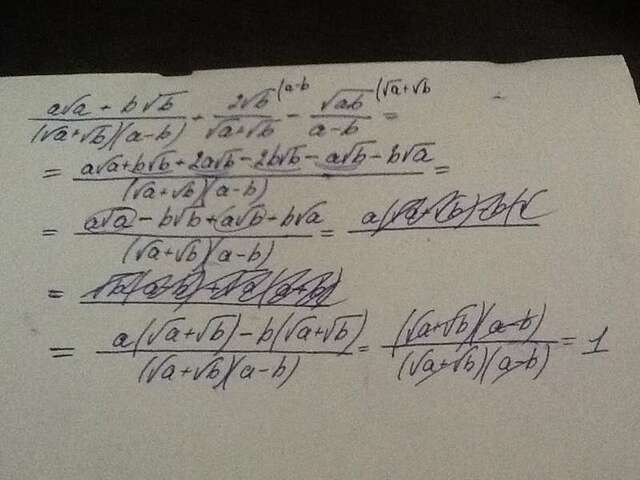 (a√a + b√b)/((√a+√b)(a−b)) + 2√b/(√a+√b) (a−b − √ab/(a−b) (√a+√b =
= (a√a+b√b+2a√b−2b√b−a√b−b√a)/((√a+√b)(a−b)) =
= (a√a−b√b+a√b−b√a)/((√a+√b)(a−b)) =
=
= (a(√a+√b)−b(√a+√b))/((√a+√b)(a−b)) = ((√a+√b)(a−b))/((√a+√b)(a−b)) = 1